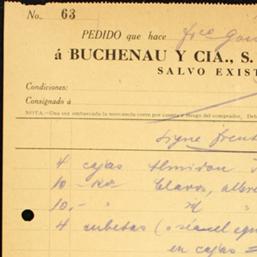 No. 63
PEDIDO que hace
á BUCHENAU Y CIA., S.
SALVO EXIST
Condiciones:
Consignado á
NOTA.—Una vez embarcada la mercancía corre por cuenta y riesgo del comprador. Deb
Sigue frente
4 cajas Almidon
10 - Clavos, albr
10, - " "
4 cubetas (o
en cajas =